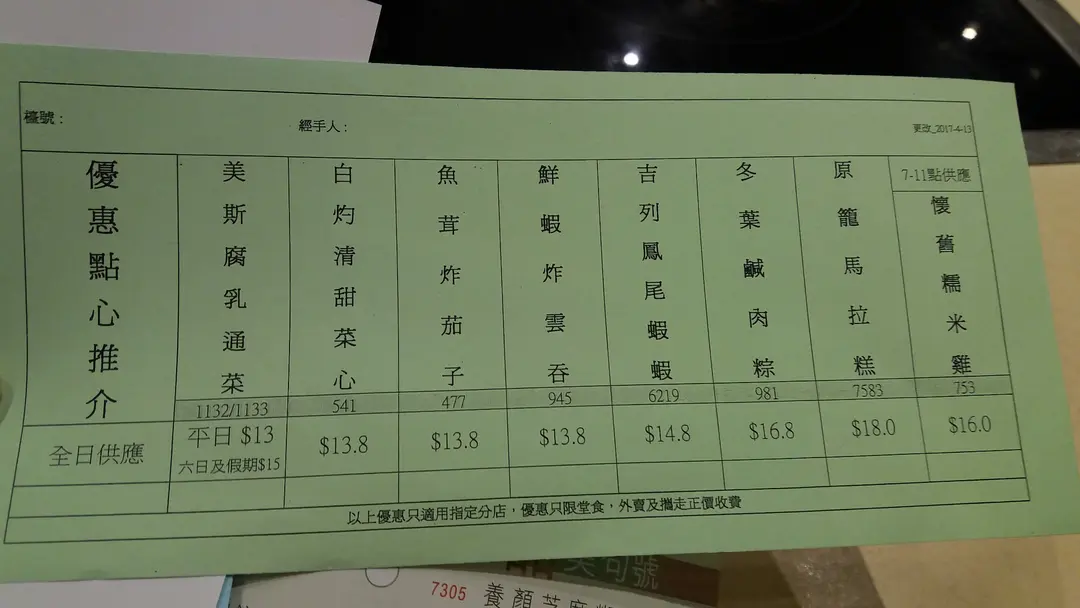 檯號：
經手人：
更改_2017-4-13
優惠點心推介
美斯腐乳通菜
白灼清甜菜心
魚茸炸茄子
鮮蝦炸雲吞
吉列鳳尾蝦蝦
冬葉鹹肉粽
原籠馬拉糕
7-11點供應
懷舊糯米雞
1132/1133
541
477
945
6219
981
7583
753
全日供應
平日 $13
六日及假期$15
$13.8
$13.8
$13.8
$14.8
$16.8
$18.0
$16.0
以上優惠只適用指定分店，優惠只限堂食，外賣及攜走正價收費
7305 養顏芝麻